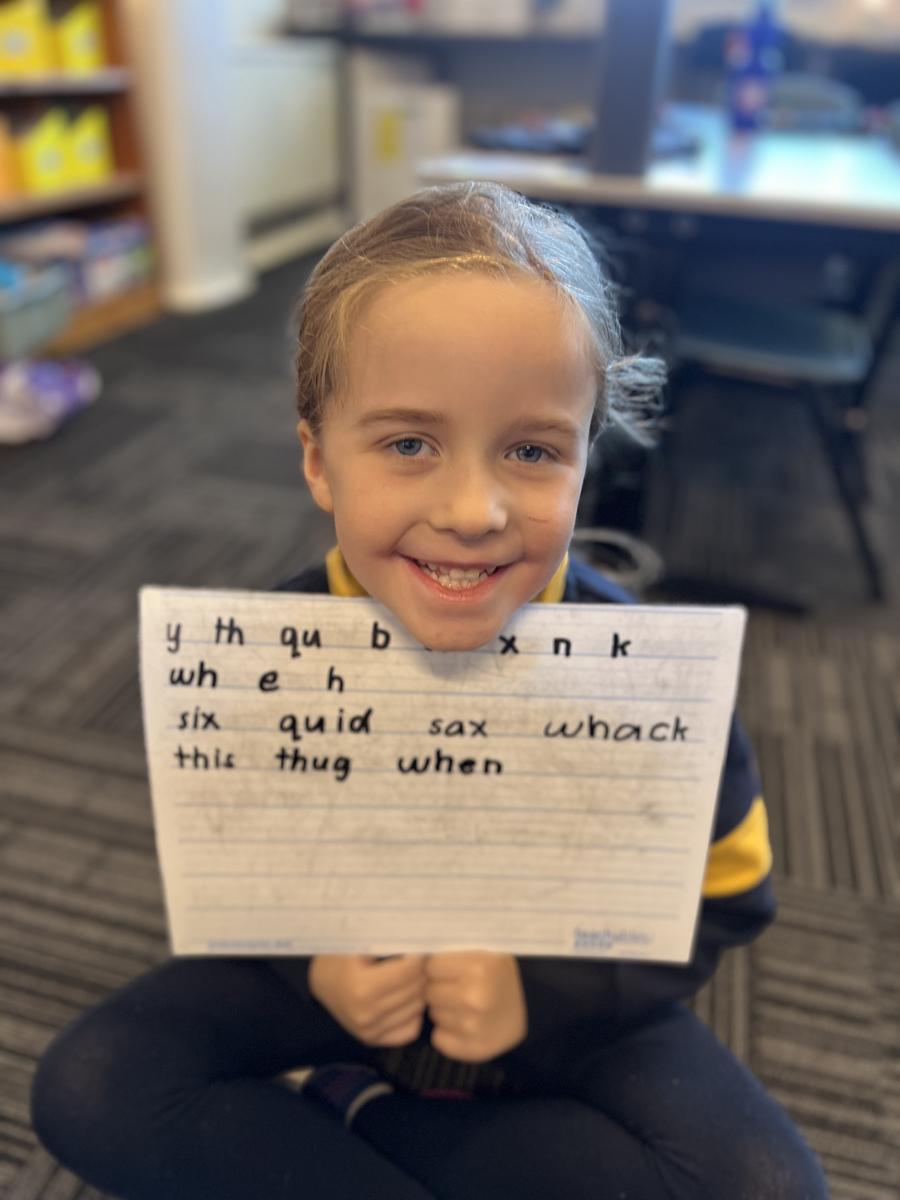 y th qu b x n k
wh e h
six quid sax whack
this thug when